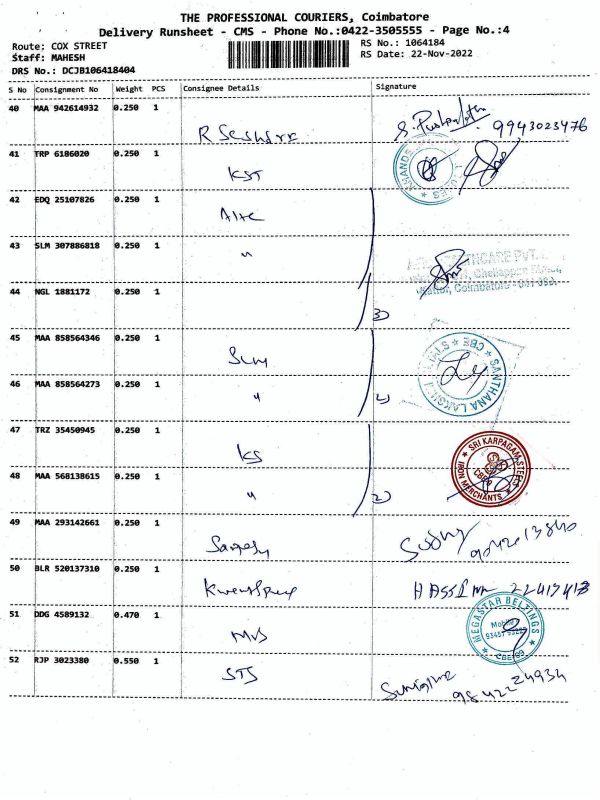 THE PROFESSIONAL COURIERS, Coimbatore
Delivery Runsheet - CMS - Phone No.:0422-3505555 - Page No.:4
Route: COX STREET
RS No.: 1064184
Staff: MAHESH
RS Date: 22-Nov-2022
DRS No.: DCJB106418404
S No Consignment No Weight PCS Consignee Details Signature
40 MAA 942614932 0.250 1
9943023476
41 TRP 6186020 0.250 1
KST
42 EDQ 25107826 0.250 1
43 SLM 307886818 0.250 1
"
44 NGL 1881172 0.250 1
3)
45 MAA 858564346 0.250 1
SLM
SANTHANA CBE
46 MAA 858564273 0.250 1
"
2)
47 TRZ 35450945 0.250 1
KS
SRI KARPAGAM STEEL
IRON MERCHANTS
48 MAA 568138615 0.250 1
"
2)
49 MAA 293142661 0.250 1
50 BLR 520137310 0.250 1
51 DDG 4589132 0.470 1
MVS
MEGASTAR BELTINGS
52 RJP 3023380 0.550 1
STS
98422 24934